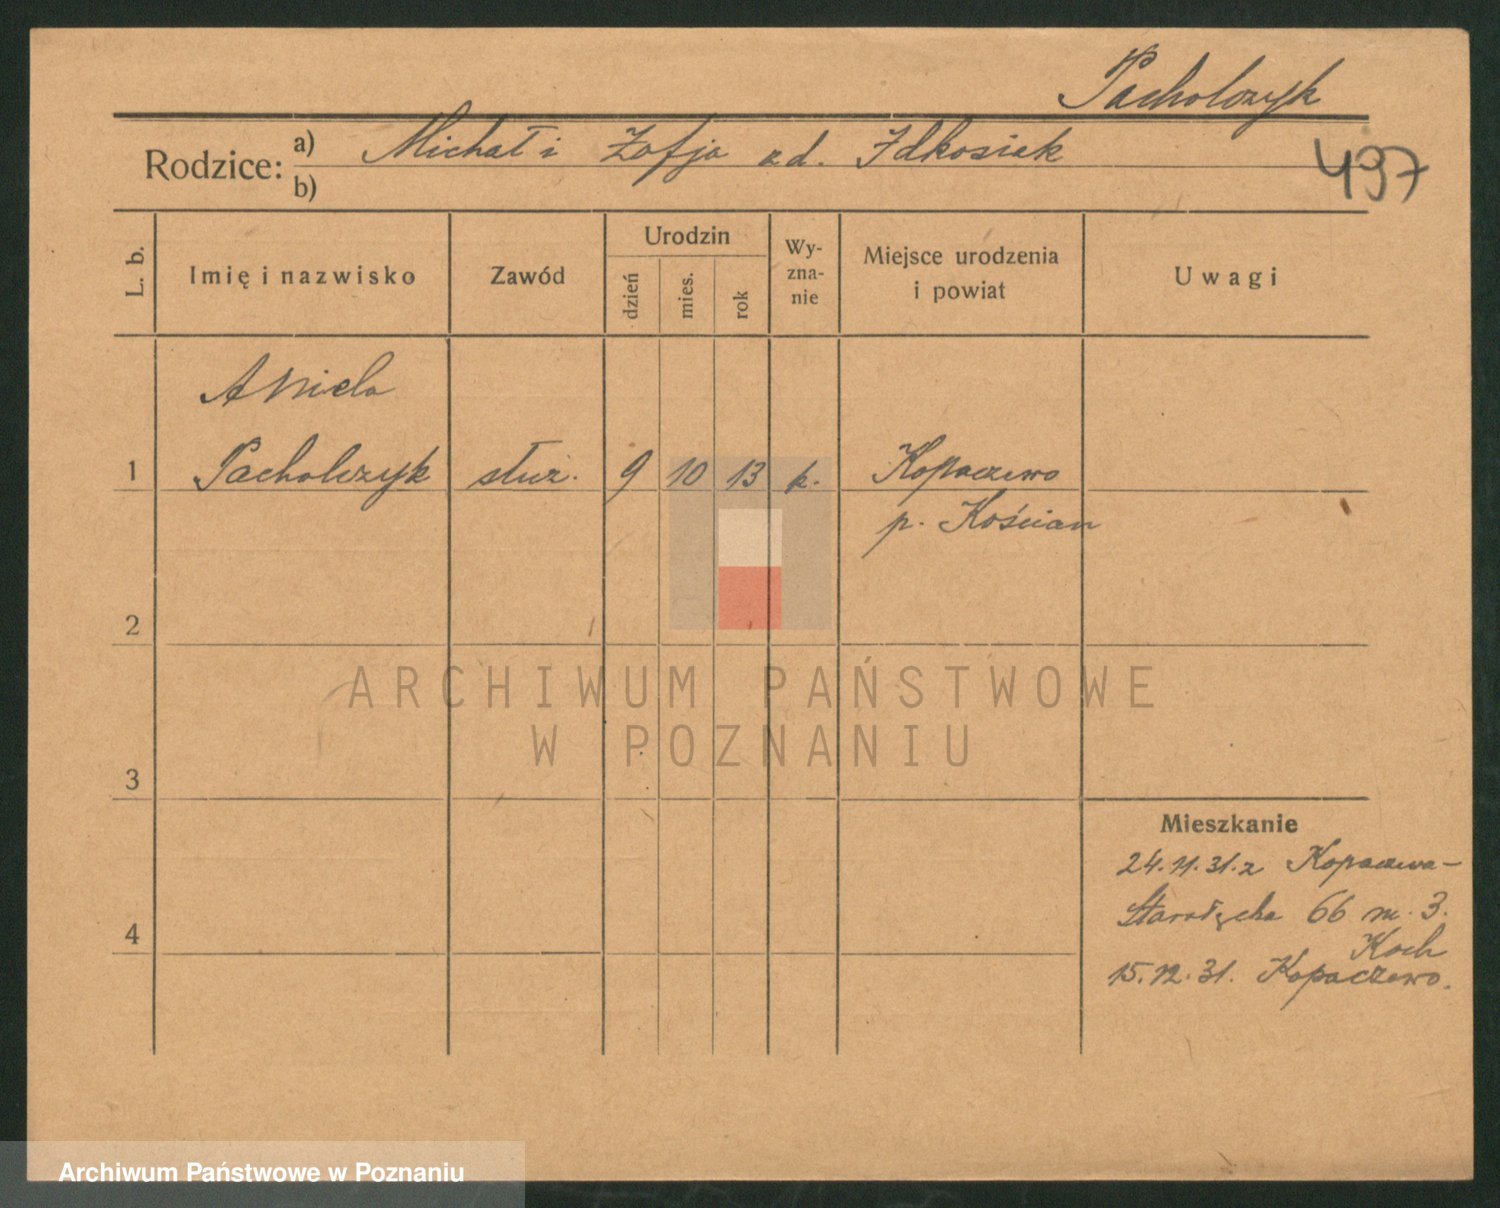 Pacholczyk
Rodzice: a) Michał i Zofja zd.
b)
497
L. b.
Imię i nazwisko
Zawód
Urodzin
dzień
mies.
rok
Wy-
zna-
nie
Miejsce urodzenia
i powiat
Uwagi
Aniela
1 Pacholczyk służ. 9 10 13 k. Kopaczewo
p. Kościan
2
3
4
Mieszkanie
24.11.31. z Kopaczewa-
Starołęcka 66 m. 3.
Koch
15.12.31. Kopaczewo.
ARCHIWUM PAŃSTWOWE
W POZNANIU
Archiwum Państwowe w Poznaniu